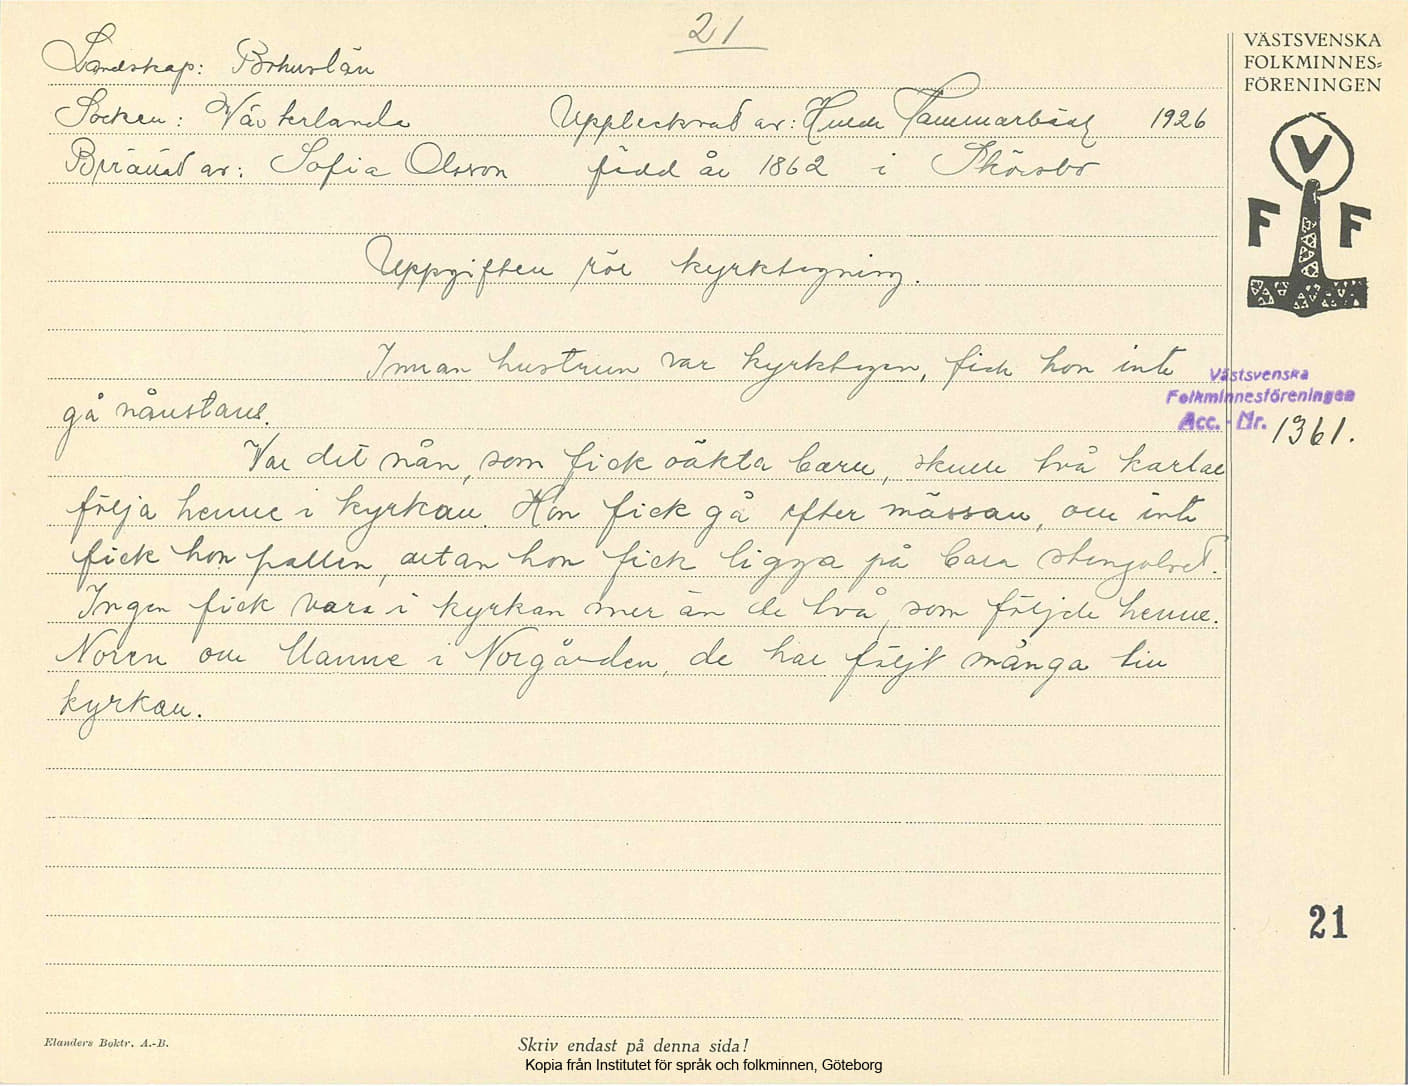 21
VÄSTSVENSKA
FOLKMINNES=
FÖRENINGEN
Landskap: Bohuslän
Socken: Västerlanda Upptecknat av: Hulda Hammarbäck 1926
Berättat av: Sofia Olsson född år 1862 i Skörsbo
V
F F
Uppgifter rör kyrktagning.
Innan hustrun var kyrktagen, fick hon inte
gå nånstans.
Västsvenska
Folkminnesföreningen
Acc. - Nr. 1361.
Var det nån, som fick oäkta barn, skulle två karlar
följa henne i kyrkan. Hon fick gå efter mässan, och inte
fick hon pallen, utan hon fick ligga på bara stengolvet.
Ingen fick vara i kyrkan mer än de två, som följde henne.
Noren och Manne i Norgården, de har följt många till
kyrkan.
21
Elanders Boktr. A.-B.
Skriv endast på denna sida!
Kopia från Institutet för språk och folkminnen, Göteborg